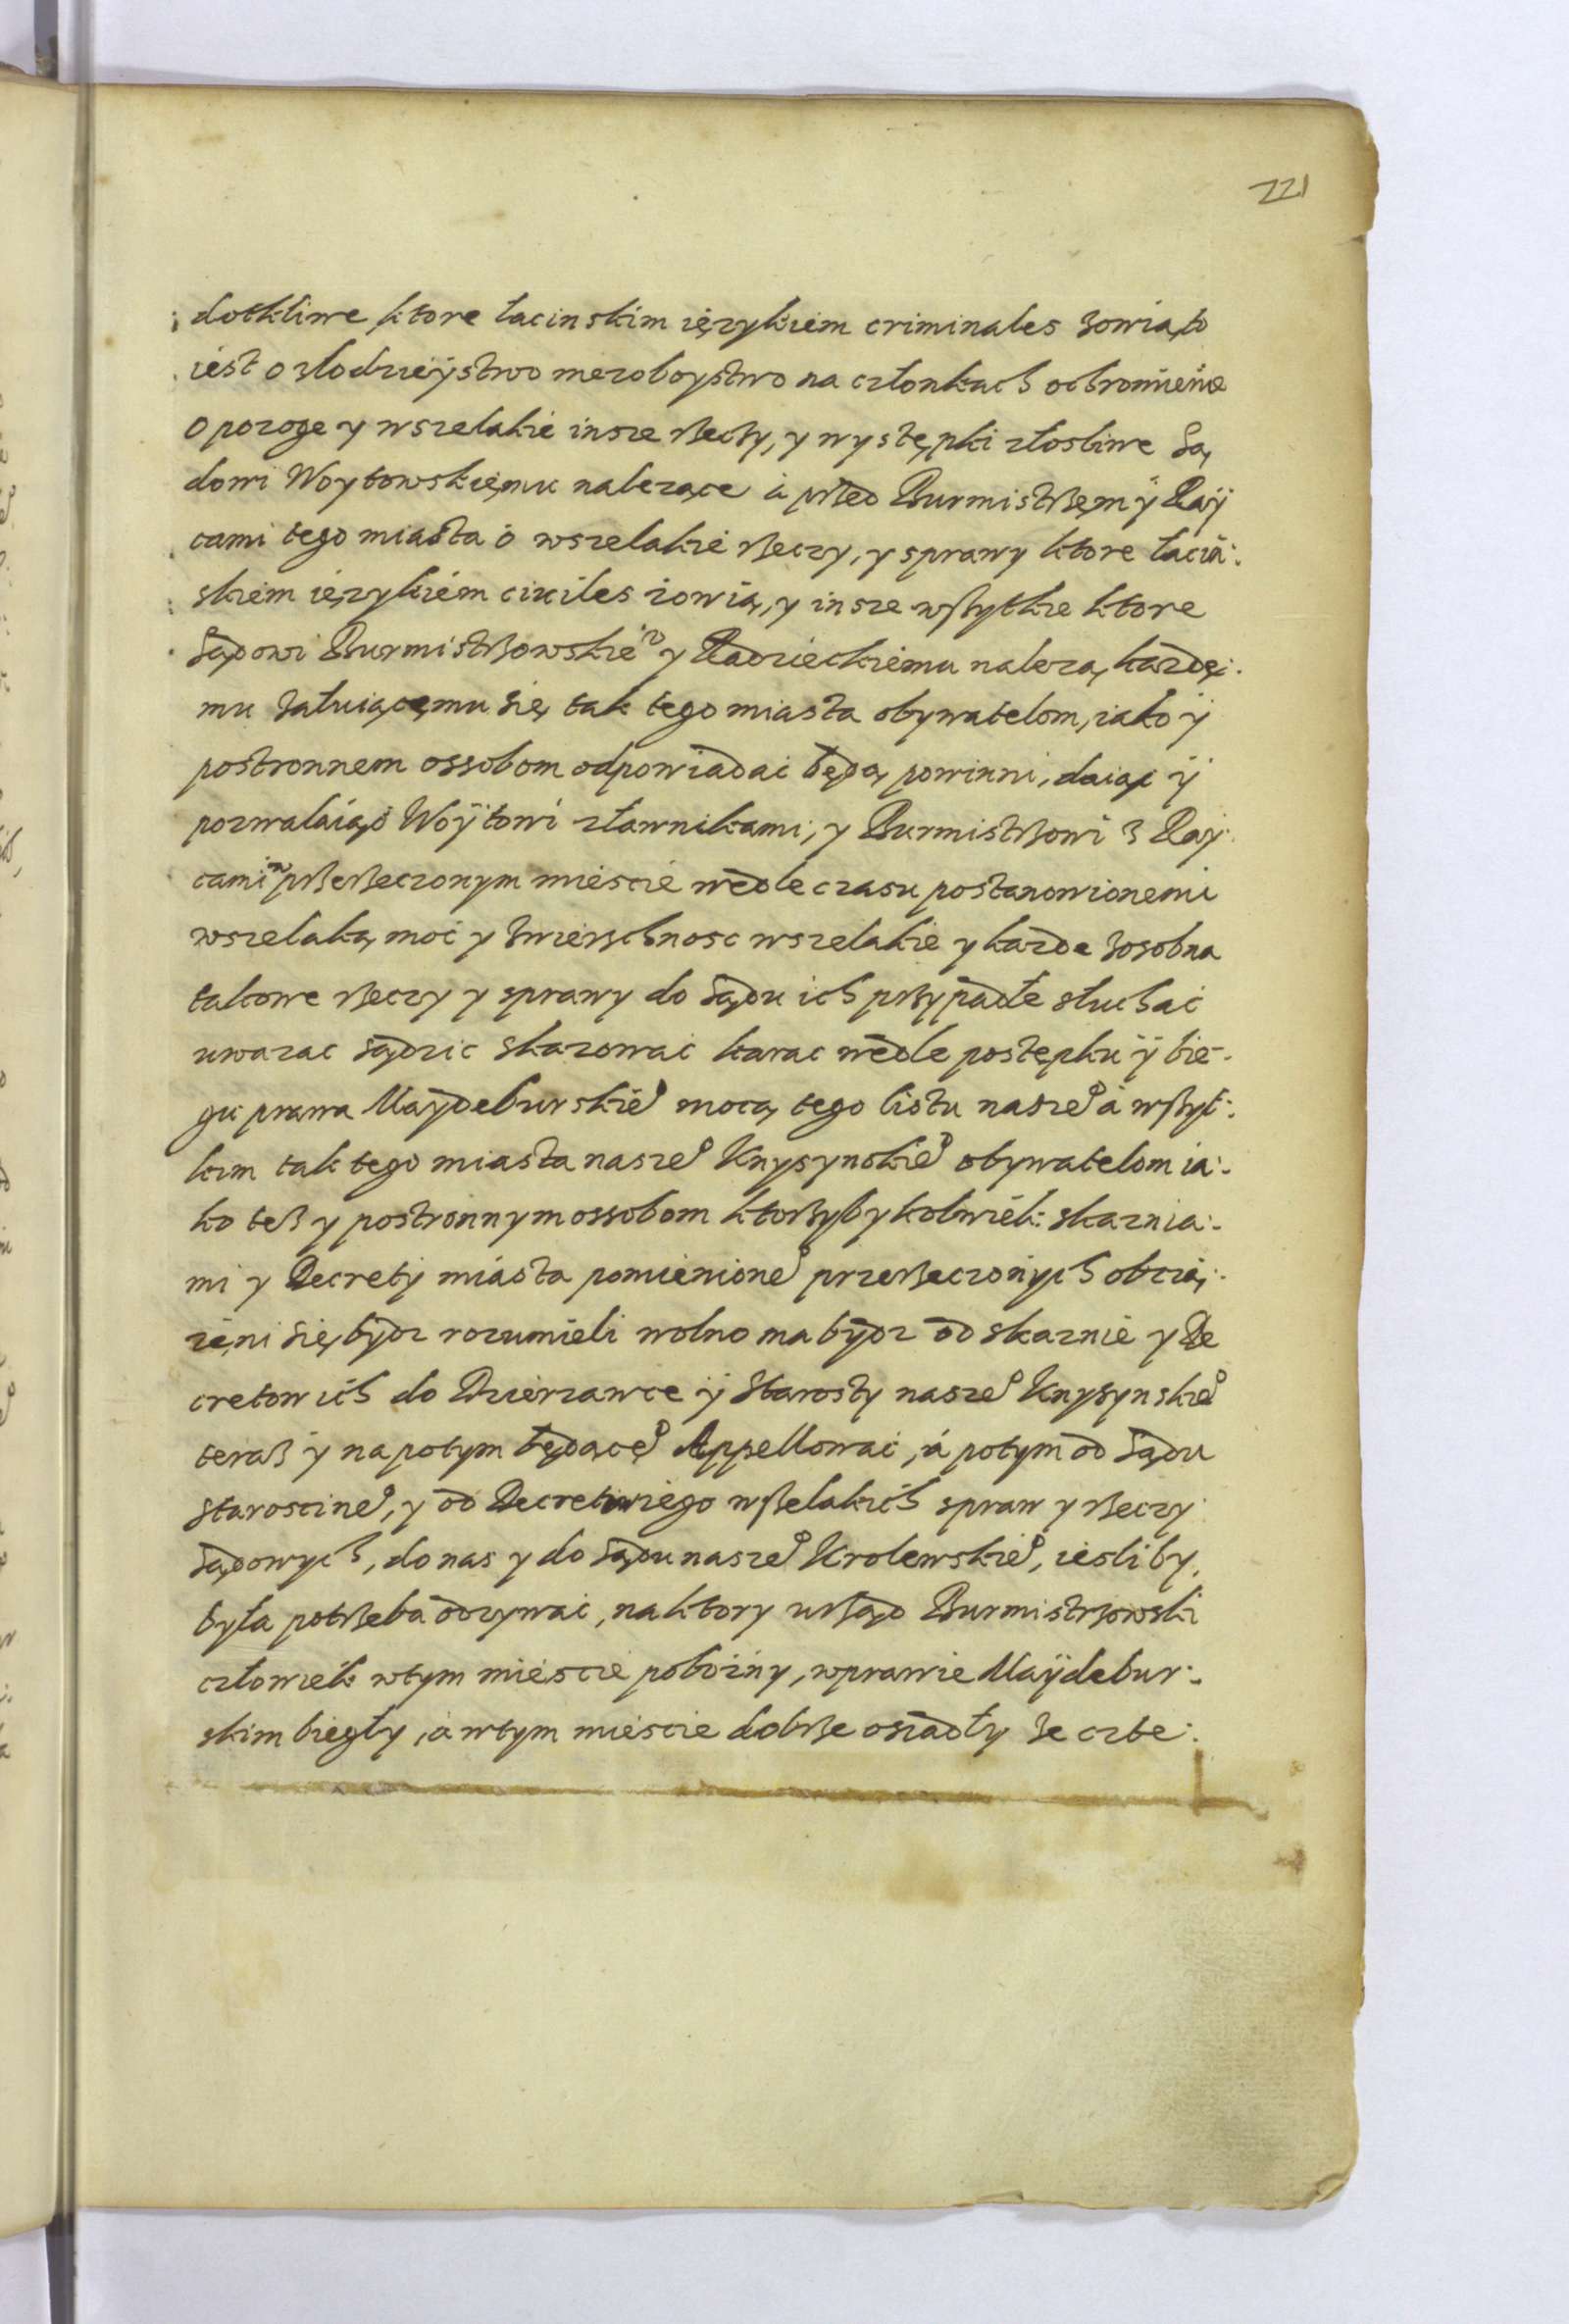 221
dotkliwe ktore łacinskim ięzykiem criminales zowią to
iest o złodzieystwo mezoboystwo na członkach ochromienie
o pozogę y wszelakie insze rzeczy, y występki złosliwe Są
dowi Woytowskiemu nalezące á przed Burmistrzem ÿ Raÿ
cami tego miasta o wszelakie rzeczy, y sprawy ktore łaciń:
skiem ięzykiem ciuiles zowią, y insze wszytkie ktore
Sądowi Burmistrzowskieº y Radzieckiemu nalezą, kazdę:
mu załuiącęmu się tak tego miasta obywatelom, iako ÿ
postronnem ossobom odpowiadać będą powinni, daiąc ÿ
pozwalaiąc Woÿtowi zławnikami, y Burmistrzowi z Raÿ
cami w przerzeczonym miescie wedle czasu postanowionemi
wszelaką moc y zwierzchnosc wszelakie y kazde zosobna
takowe rzeczy y sprawy do Sądu ich przypadłe słuchać
uwazac sądzic skazowac karac wedle postępku ÿ bie-
gu prawa Maÿdeburskieº mocą tego listu naszeº á wszyt:
kim tak tego miasta naszeº Knyszynskieº obywatelom ia:
ko tesz y postronnym ossobom ktorzyby kolwiek skaznia:
mi y Decretÿ miásta pomienioneº przerzeczonÿch obcią:
zęni się bÿdz rozumieli wolno ma bÿdz od skaznie y De
cretow ich do Dzierzawce ÿ Starosty naszeº Knyszynskieº
terasz ÿ napotym będąceº Appellowac, á potym od Sądu
Staroscineº, y od Decretu iego wszelakich spraw y rzeczy
Sądowych, do nas y do Sądu naszeº Krolewskieº, iesliby
była potrzeba odzywac, na ktory urząd Burmistrzowski
człowiek wtym miescie pobozny, wprawie Maÿdebur:
skim biegły, á wtym miescie dobrze osiadły ze czte: